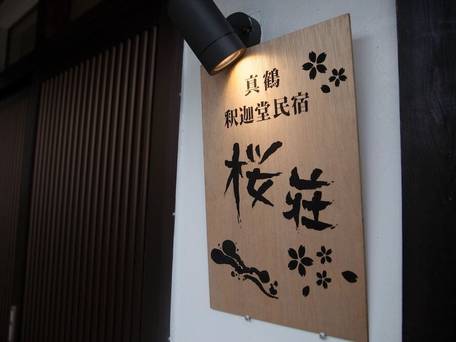 真鶴
釈迦堂民宿
桜荘